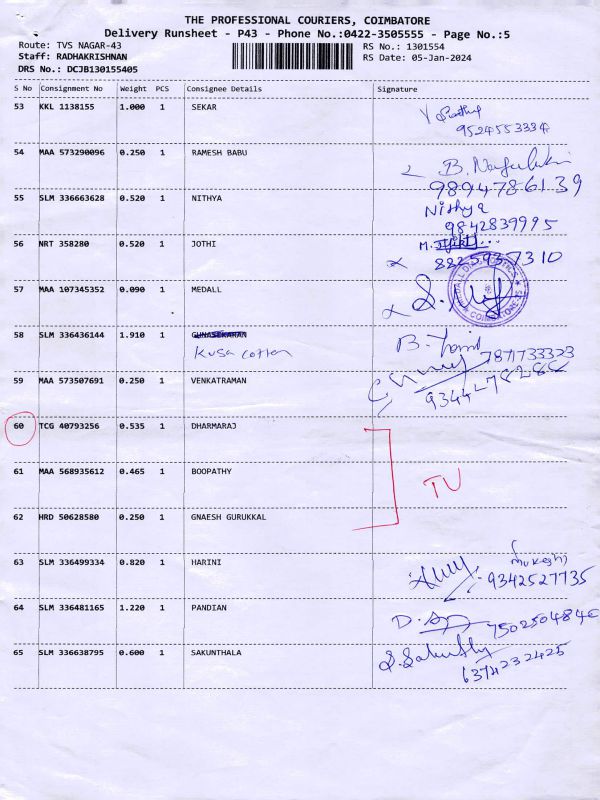 THE PROFESSIONAL COURIERS, COIMBATORE
Delivery Runsheet - P43 - Phone No.:0422-3505555 - Page No.:5
Route: TVS NAGAR-43 RS No.: 1301554
Staff: RADHAKRISHNAN RS Date: 05-Jan-2024
DRS No.: DCJB130155405
S No Consignment No Weight PCS Consignee Details Signature
53 KKL 1138155 1.000 1 SEKAR
9524553334
54 MAA 573290096 0.250 1 RAMESH BABU B.
9894786139
55 SLM 336663628 0.520 1 NITHYA Nithya
9842839995
56 NRT 358280 0.520 1 JOTHI M.
8825937310
57 MAA 107345352 0.090 1 MEDALL
58 SLM 336436144 1.910 1 GUNASEKARAN B.
Kusa cotton 7871733323
59 MAA 573507691 0.250 1 VENKATRAMAN
60 TCG 40793256 0.535 1 DHARMARAJ
61 MAA 568935612 0.465 1 BOOPATHY TV
62 HRD 50628580 0.250 1 GNAESH GURUKKAL
63 SLM 336499334 0.820 1 HARINI Mukesh
9342527735
64 SLM 336481165 1.220 1 PANDIAN D.
65 SLM 336638795 0.600 1 SAKUNTHALA S.
6374232425